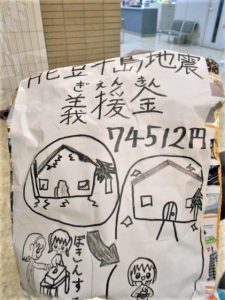 能登半島地震
ぎえんきん
義援金
74512円
ぼきんする